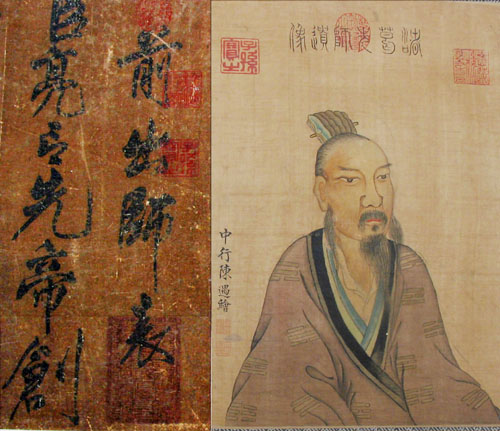 前出師表
臣亮言先帝創
諸葛師遺像
中行陳遇繪